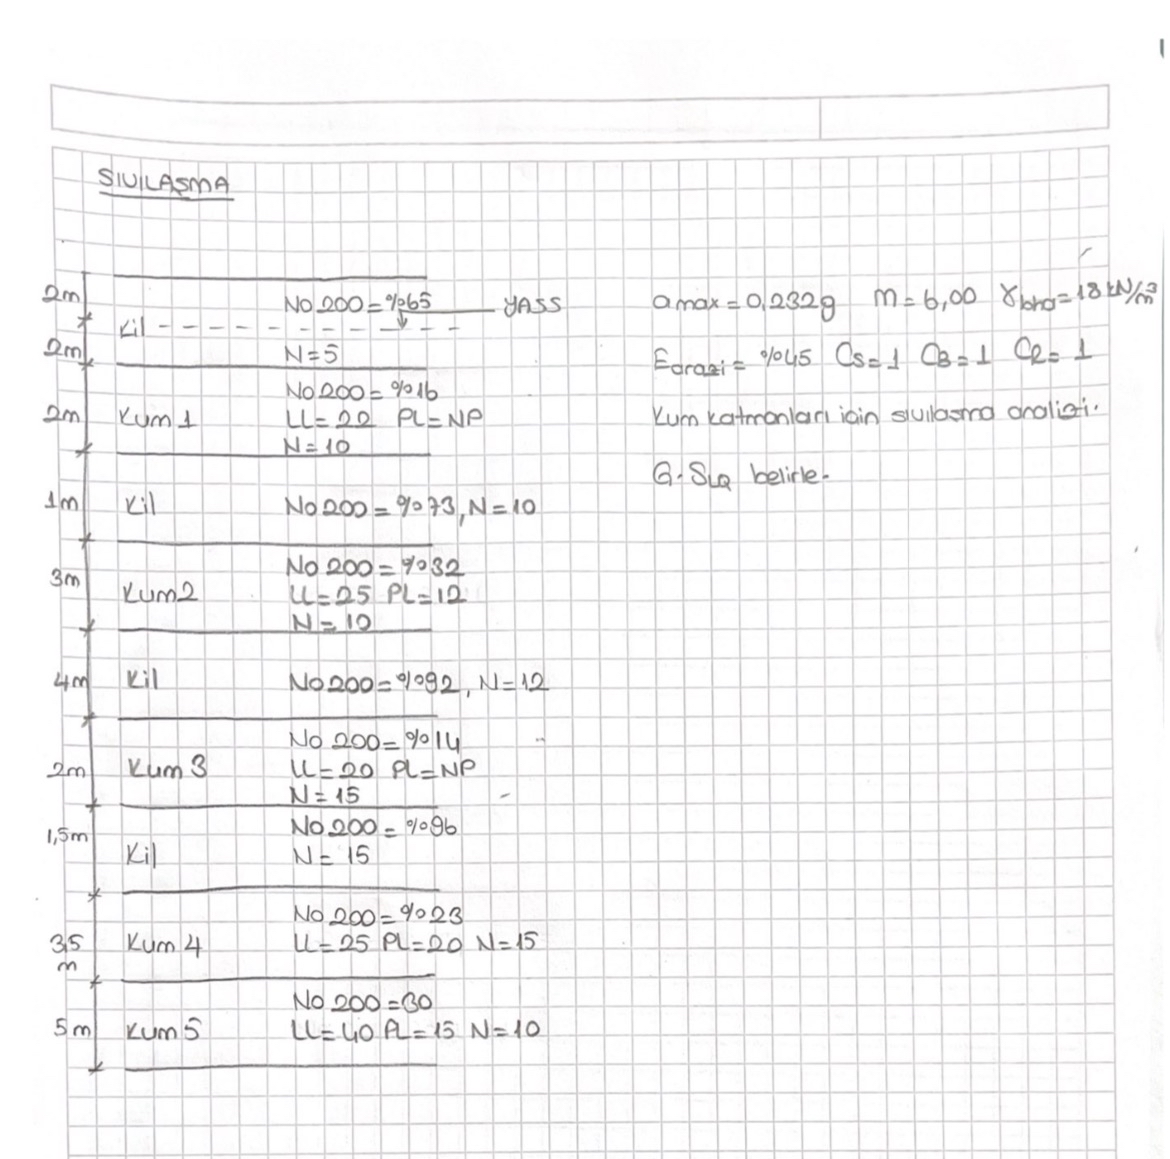 SIVILAŞMA
2m
No 200 = %65 YASS
Kil
2m
N=5
No 200 = %16
2m Kum 1 LL=22 PL=NP
N=10
1m Kil No 200 = %73, N=10
No 200 = %32
3m Kum2 LL=25 PL=12
N=10
4m Kil No 200 = %92, N=12
No 200 = %14
2m Kum 3 LL=20 PL=NP
N=15
1,5m No 200 = %96
Kil N= 15
No 200 = %23
3,5 m Kum 4 LL=25 PL=20 N=15
No 200 =30
5m Kum 5 LL=40 PL=15 N=10
amax = 0,232g M=6,00 = 18 kN/m³
Earazi = %45 Cs=1 CB=1 CR=1
Kum katmanları için sıvılaşma analizi.
G. SLQ belirle.